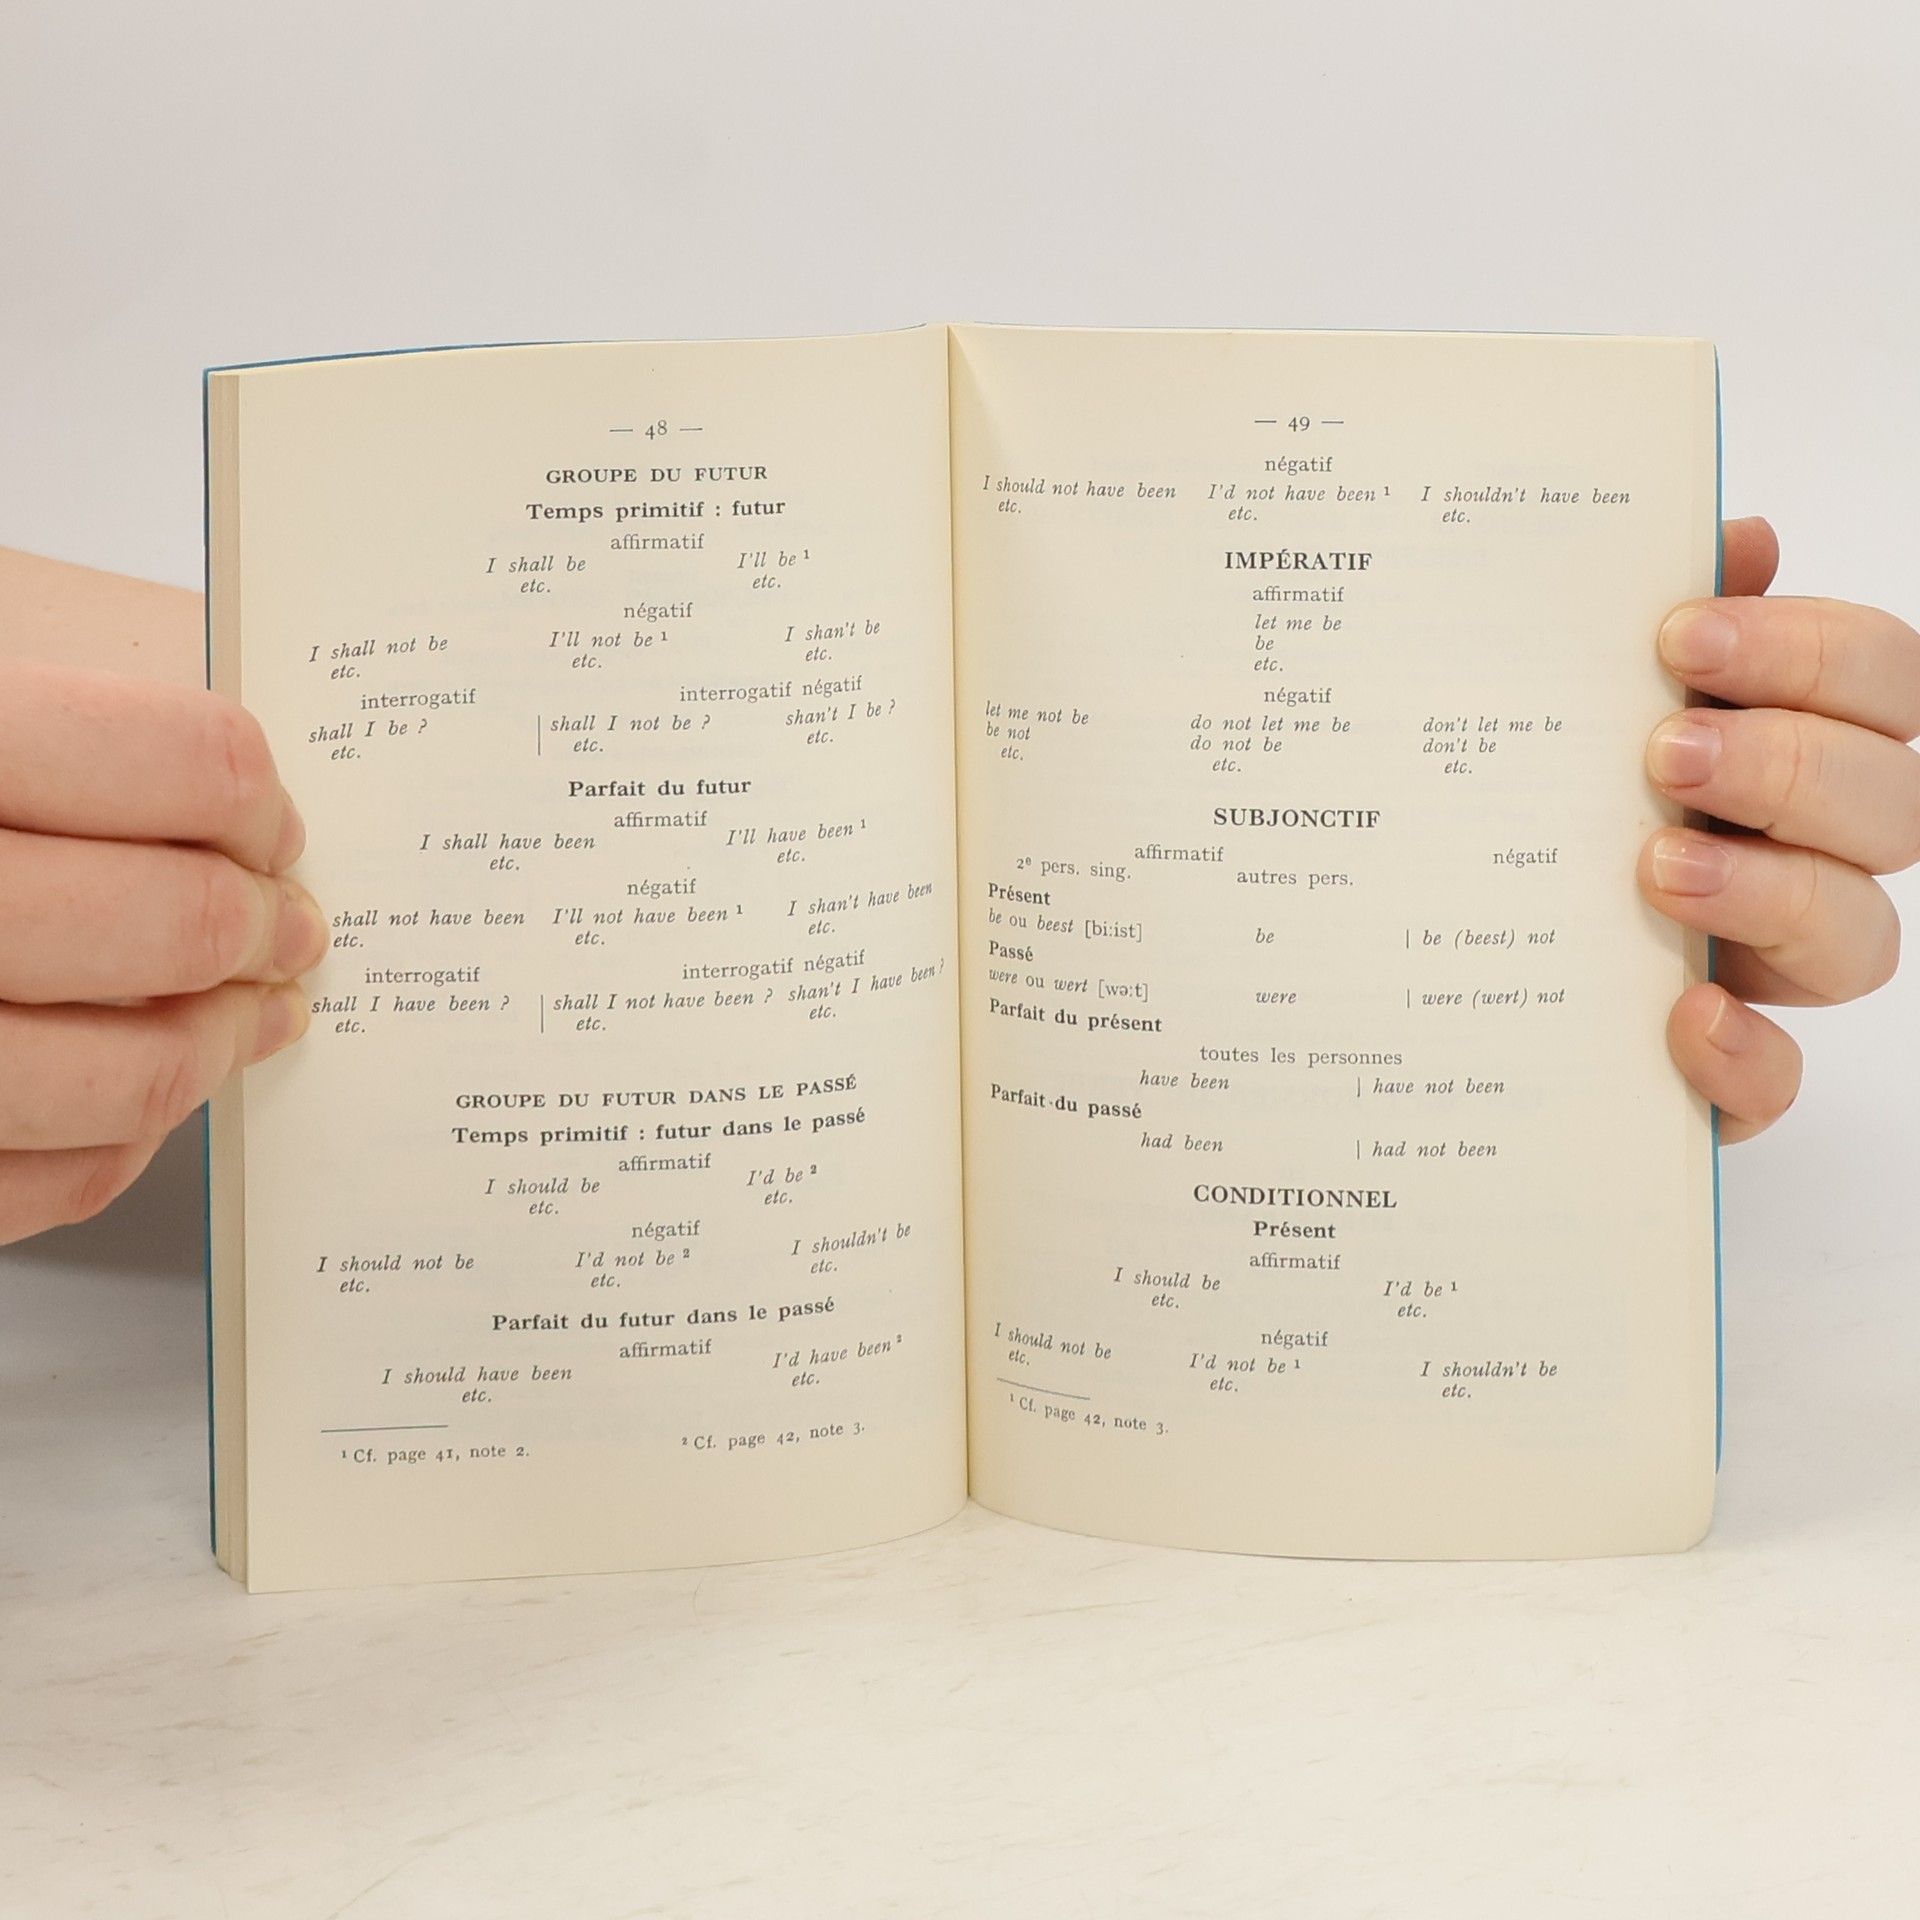 — 48 —
GROUPE DU FUTUR
Temps primitif : futur
affirmatif
I shall be I'll be ¹
etc. etc.
négatif
I shall not be I'll not be ¹ I shan't be
etc. etc. etc.
interrogatif interrogatif négatif
shall I be ? | shall I not be ? shan't I be ?
etc. etc. etc.
Parfait du futur
affirmatif
I shall have been I'll have been ¹
etc. etc.
négatif
shall not have been I'll not have been ¹ I shan't have been
etc. etc. etc.
interrogatif interrogatif négatif
shall I have been ? | shall I not have been ? shan't I have been ?
etc. etc. etc.
GROUPE DU FUTUR DANS LE PASSÉ
Temps primitif : futur dans le passé
affirmatif
I should be I'd be ²
etc. etc.
négatif
I should not be I'd not be ² I shouldn't be
etc. etc. etc.
Parfait du futur dans le passé
affirmatif
I should have been I'd have been ²
etc. etc.
¹ Cf. page 41, note 2. ² Cf. page 42, note 3.
— 49 —
négatif
I should not have been I'd not have been ¹ I shouldn't have been
etc. etc. etc.
IMPÉRATIF
affirmatif
let me be
be
etc.
négatif
let me not be do not let me be don't let me be
be not do not be don't be
etc. etc. etc.
SUBJONCTIF
affirmatif négatif
2e pers. sing. autres pers.
Présent
be ou beest [bi:ist] be | be (beest) not
Passé
were ou wert [wə:t] were | were (wert) not
Parfait du présent
toutes les personnes
have been | have not been
Parfait du passé
had been | had not been
CONDITIONNEL
Présent
affirmatif
I should be I'd be ¹
etc. etc.
négatif
I should not be I'd not be ¹ I shouldn't be
etc. etc. etc.
¹ Cf. page 42, note 3.